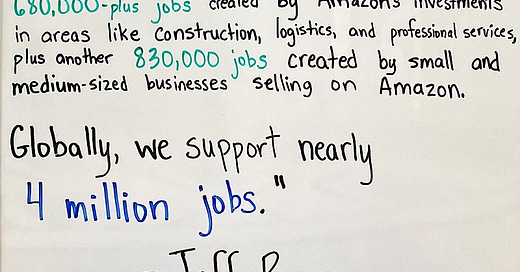 680,000-plus jobs created by Amazon's investments
in areas like construction, logistics, and professional services,
plus another 830,000 jobs created by small and
medium-sized businesses selling on Amazon.
Globally, we support nearly
4 million jobs."
Jeff B